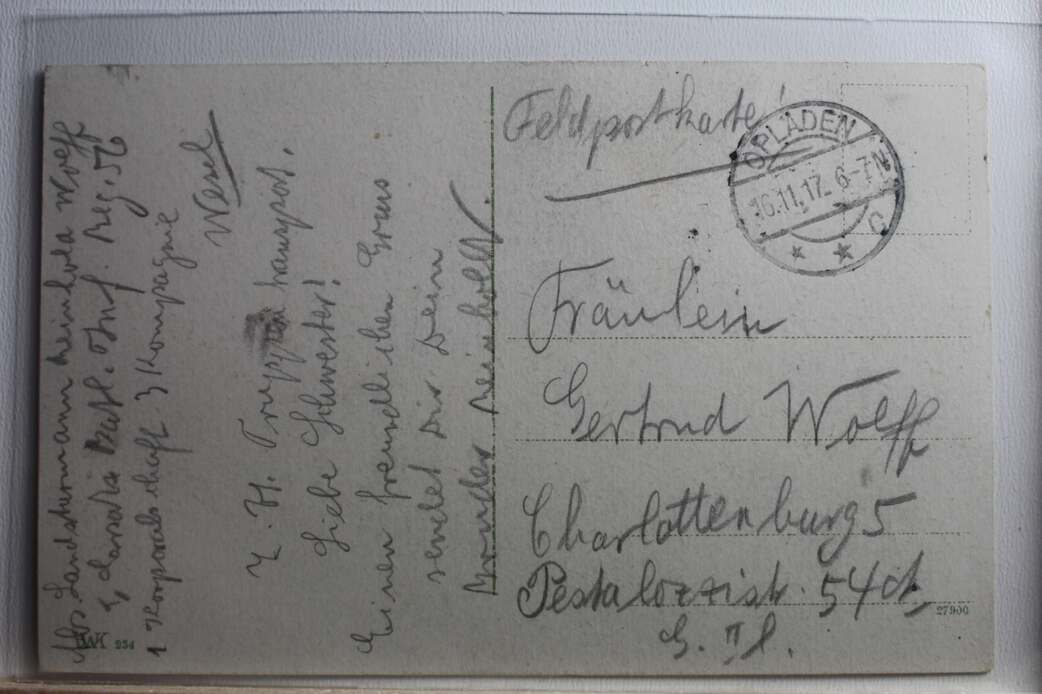 Abs. Landsturmann Reinhold Wolff
Ersatz Batl. Inf. Reg. 56
1 Korporalschaft 3 Kompagnie
Wesel
z. Zt. Truppentransport.
Liebe Schwester!
Einen freundlichen Gruss
sendet Dir Dein
Bruder Reinhold W.
Feldpostkarte!
OPLADEN
16.11.17. 6-7 N
C
Fräulein
Gertrud Wolff
Charlottenburg 5
Pestalozzistr. 54a
G. II l.
27900
WI 934